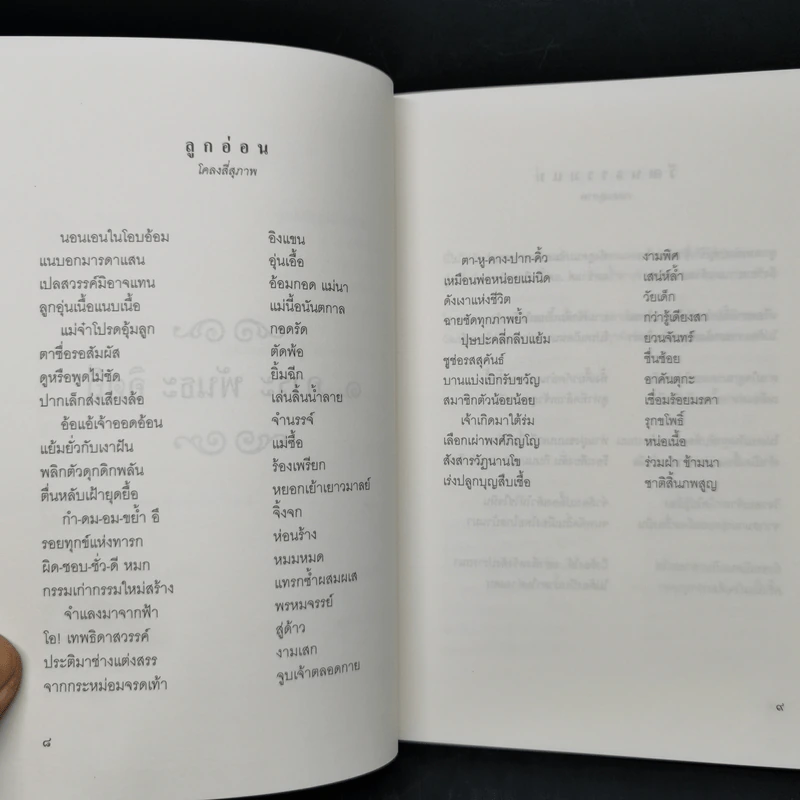 ลูกอ่อน
โคลงสี่สุภาพ
นอนเอนในโอบอ้อม อิงแขน
แนบอกมารดาแสน อุ่นเอื้อ
เปลสวรรค์มิอาจแทน อ้อมกอด แม่นา
ลูกอุ่นเนื้อแนบเนื้อ แม่นี้อนันตกาล
แม่จำโปรดอุ้มลูก กอดรัด
ตาชื่อรอสัมผัส ตัดพ้อ
ดูหรือพูดไม่ชัด ยิ้มฉีก
ปากเล็กส่งเสียงล้อ เล่นลิ้นน้ำลาย
อ้อแอ้เจ้าออดอ้อน จำนรรจ์
แย้มยั่วกับเงาฝัน แม่ซื้อ
พลิกตัวดุกดิกพลัน ร้องเพรียก
ตื่นหลับเฝ้ายุดยื้อ หยอกเย้าเยาวมาลย์
กำ-ดม-อม-ขย้ำ อึ จิ้งจก
รอยทุกข์แห่งทารก ห่อนร้าง
ผิด-ชอบ-ชั่ว-ดี หมก หมมหมด
กรรมเก่ากรรมใหม่สร้าง แทรกซ้ำผสมผเส
จำแลงมาจากฟ้า พรหมจรรย์
โอ! เทพธิดาสวรรค์ สู่ด้าว
ประติมาช่างแต่งสรร งามเสก
จากกระหม่อมจรดเท้า จูบเจ้าตลอดกาย
๘
ตา-หู-คาง-ปาก-คิ้ว งามพิศ
เหมือนพ่อหน่อยแม่นิด เสน่ห์ล้ำ
ดังเงาแห่งชีวิต วัยเด็ก
ฉายชัดทุกภาพย้ำ กว่ารู้เดียงสา
ปุษปะคลี่กลีบแย้ม ยวนจันทร์
ชูช่อรสสุคันธ์ ชื่นช้อย
บานแบ่งเบิกรับขวัญ อาคันตุกะ
สมาชิกตัวน้อยน้อย เชื่อมร้อยมรคา
เจ้าเกิดมาใต้ร่ม รุกขโพธิ์
เลือกเผ่าพงศ์ภิญโญ หน่อเนื้อ
สังสารวัฏนานโข ร่วมฝ่า ข้ามนา
เร่งปลูกบุญสืบเชื้อ ชาติสิ้นภพสูญ
๙